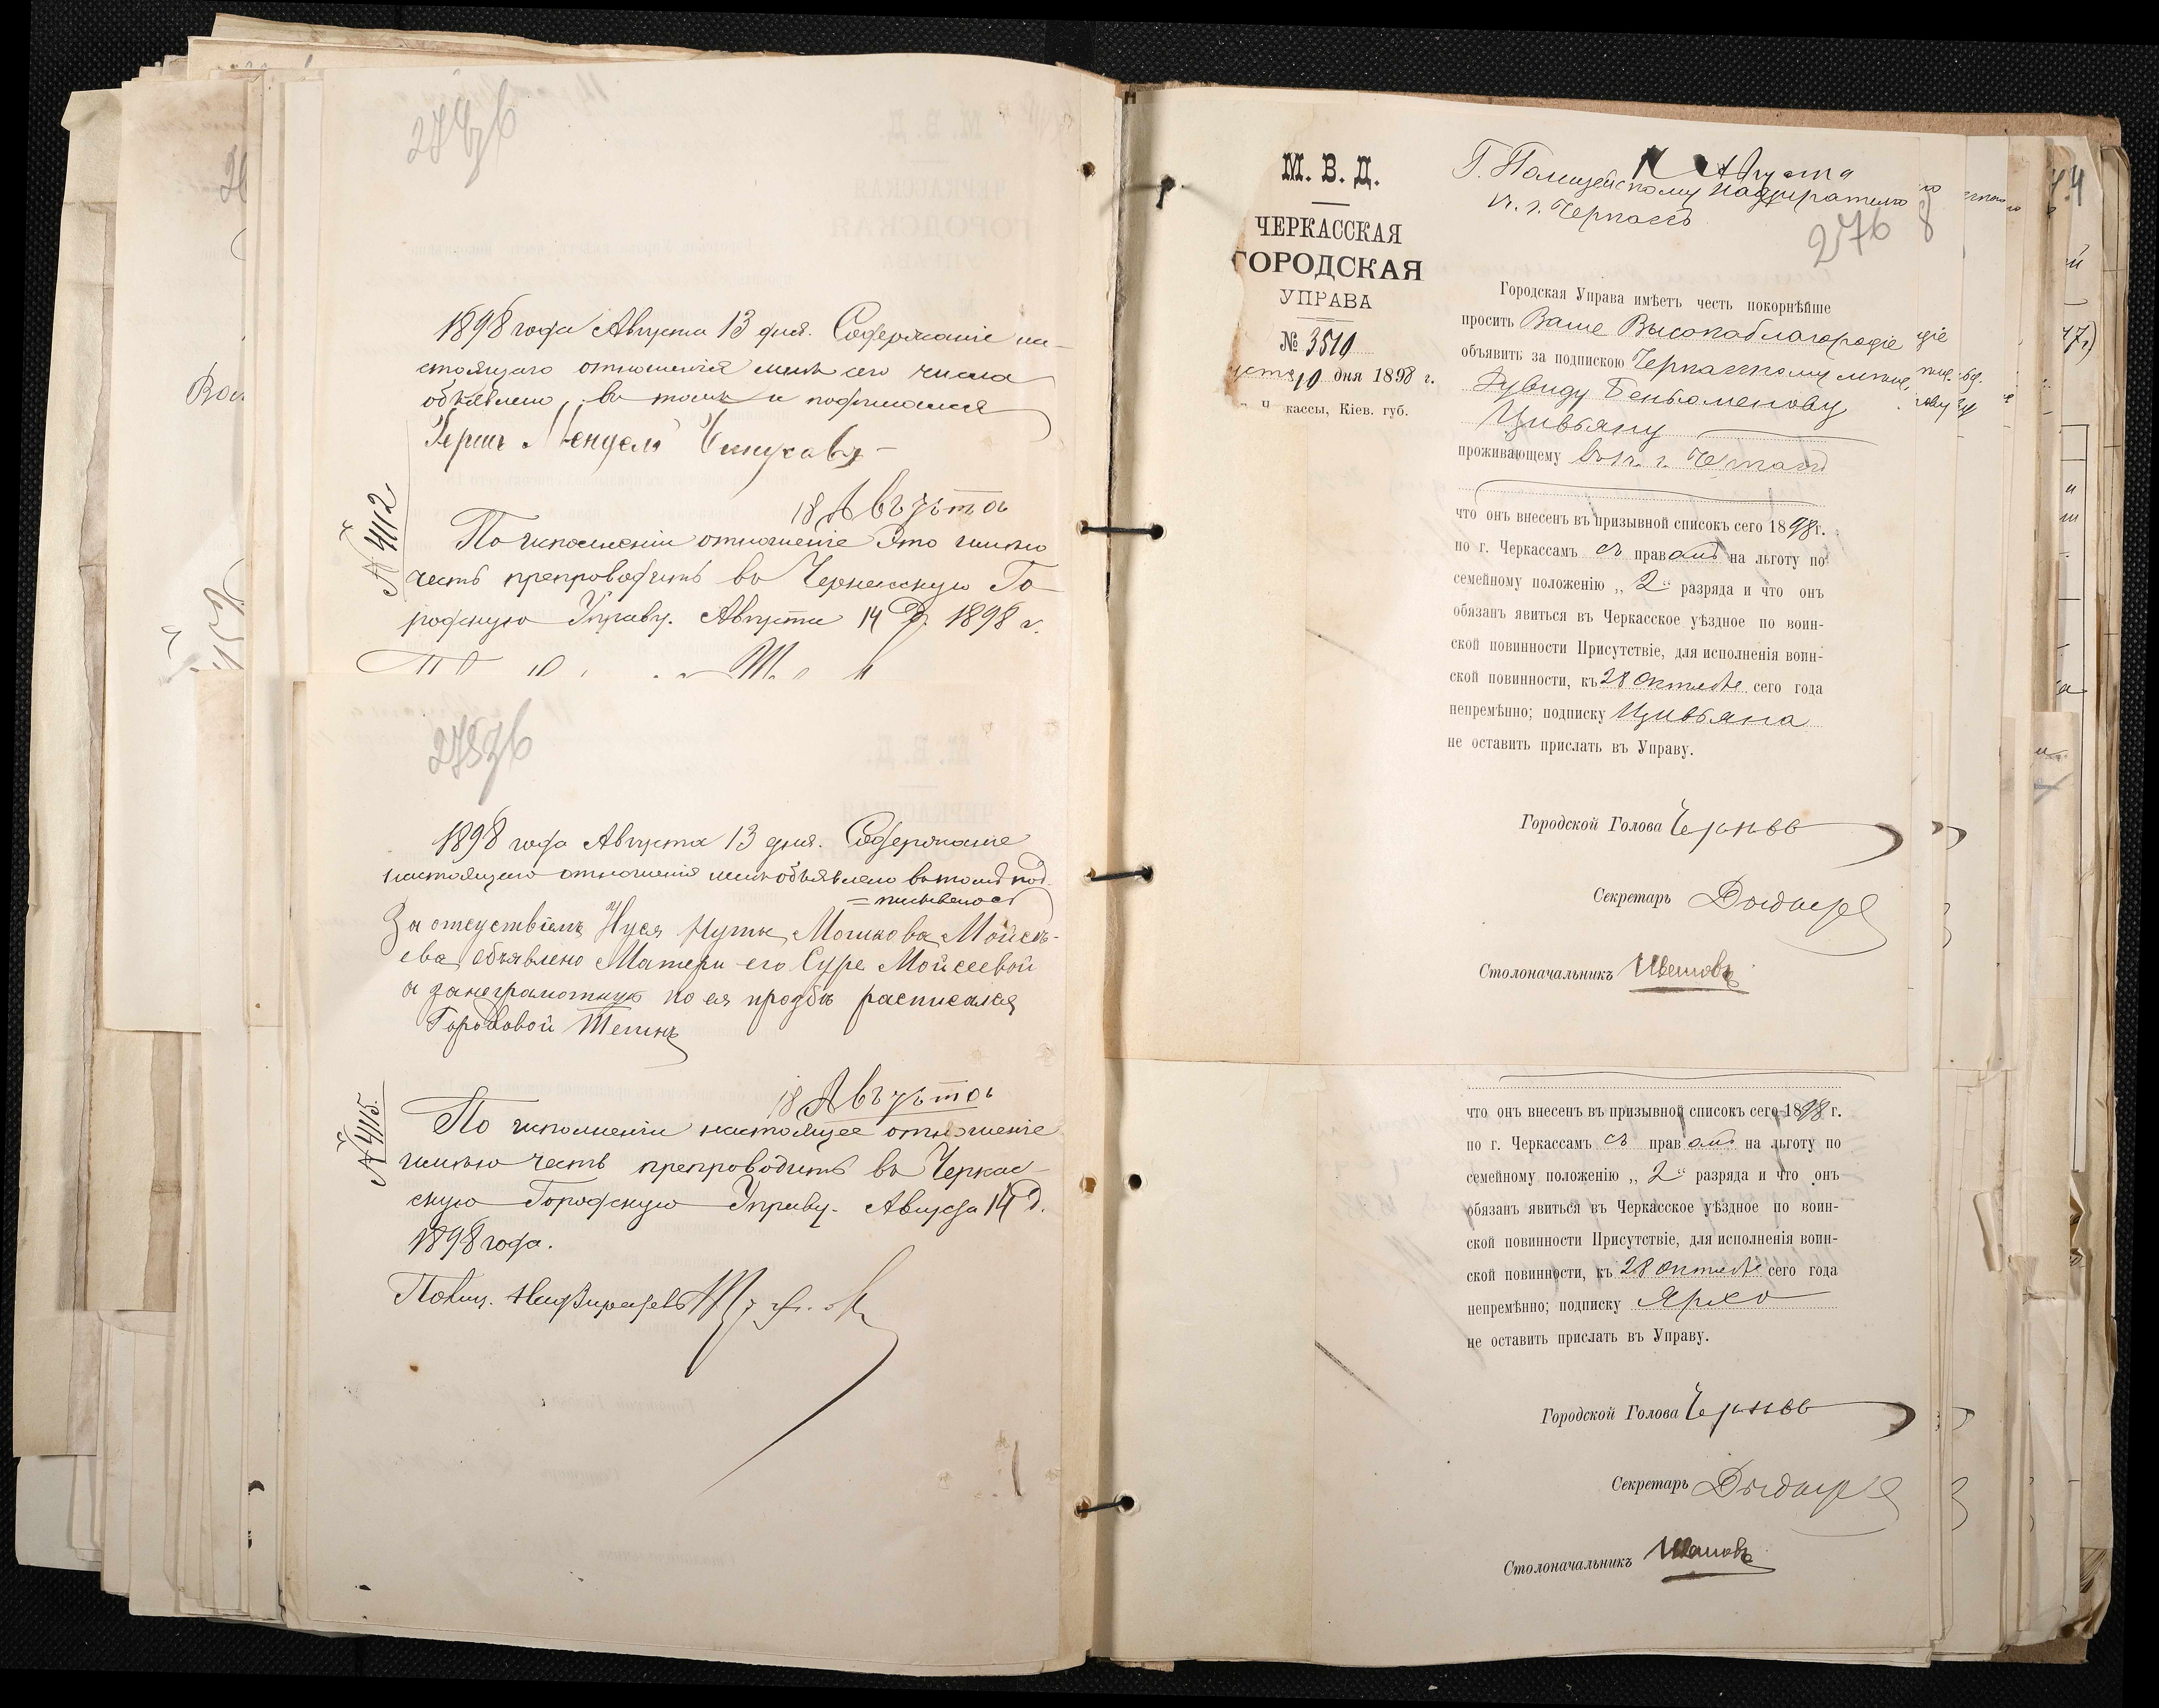 274 об
1898 года Августа 13 дня. Содержаніе на-
стоящаго отношенія мнѣ сего числа
объявлено, въ томъ и подписался
Гершъ Мендель
18 Августа
№ 4112
По исполненіи отношеніе это имѣю
честь препроводить въ Черкасскую Го-
родскую Управу. Августа 14 д. 1898 г.
275 об
1898 года Августа 13 дня. Содержаніе
настоящаго отношенія мнѣ объявлено въ томъ под
=писываюсь
За отсуствіемъ Мошкова Мойсѣ-
ева объявлено Матери его Суре Мойсеевой
а занеграмотную по ея прозбѣ расписался
Городовой
18 Августа
№ 4115.
По исполненіи настоящее отношеніе
имѣю честь препроводить въ Черкас-
скую Городскую Управу. Августа 14 д.
1898 года.
Полиц. Надзиратель
М. В. Д.
ЧЕРКАССКАЯ
ГОРОДСКАЯ
УПРАВА
№ 3510
10 дня 1898 г.
кассы, Кіев. губ.
Августа
Г. Полицейскому надзирателю
въ г. Черкассъ
276
Городская Управа имѣетъ честь покорнѣйше
просить Ваше Высокоблагородіе
объявить за подпискою Черкасскому мѣщ.
Дувиду Беньоменову
Цивьяну
проживающему въ г. Черкассъ
что онъ внесенъ въ призывной списокъ сего 1898 г.
по г. Черкассамъ съ правомъ на льготу по
семейному положенію „2“ разряда и что онъ
обязанъ явиться въ Черкасское уѣздное по воин-
ской повинности Присутствіе, для исполненія воин-
ской повинности, къ 28 Октября сего года
непремѣнно; подписку Цивьяна
не оставить прислать въ Управу.
Городской Голова
Секретарь
Столоначальникъ
что онъ внесенъ въ призывной списокъ сего 1898 г.
по г. Черкассамъ съ правомъ на льготу по
семейному положенію „2“ разряда и что онъ
обязанъ явиться въ Черкасское уѣздное по воин-
ской повинности Присутствіе, для исполненія воин-
ской повинности, къ 28 Октября сего года
непремѣнно; подписку Ярхо
не оставить прислать въ Управу.
Городской Голова
Секретарь
Столоначальникъ